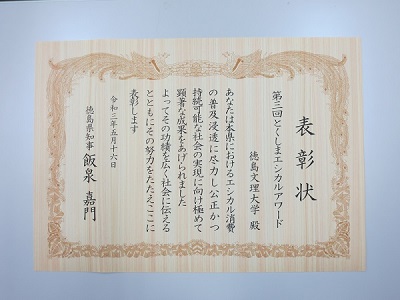 表彰状
第三回とくしまエシカルアワード
徳島文理大学 殿
あなたは本県におけるエシカル消費
の普及浸透に尽力し公正かつ
持続可能な社会の実現に向け極めて
顕著な成果をあげられました
よってその功績を広く社会に伝える
とともにその努力をたたえここに
表彰します
令和三年五月十六日
徳島県知事 飯泉嘉門